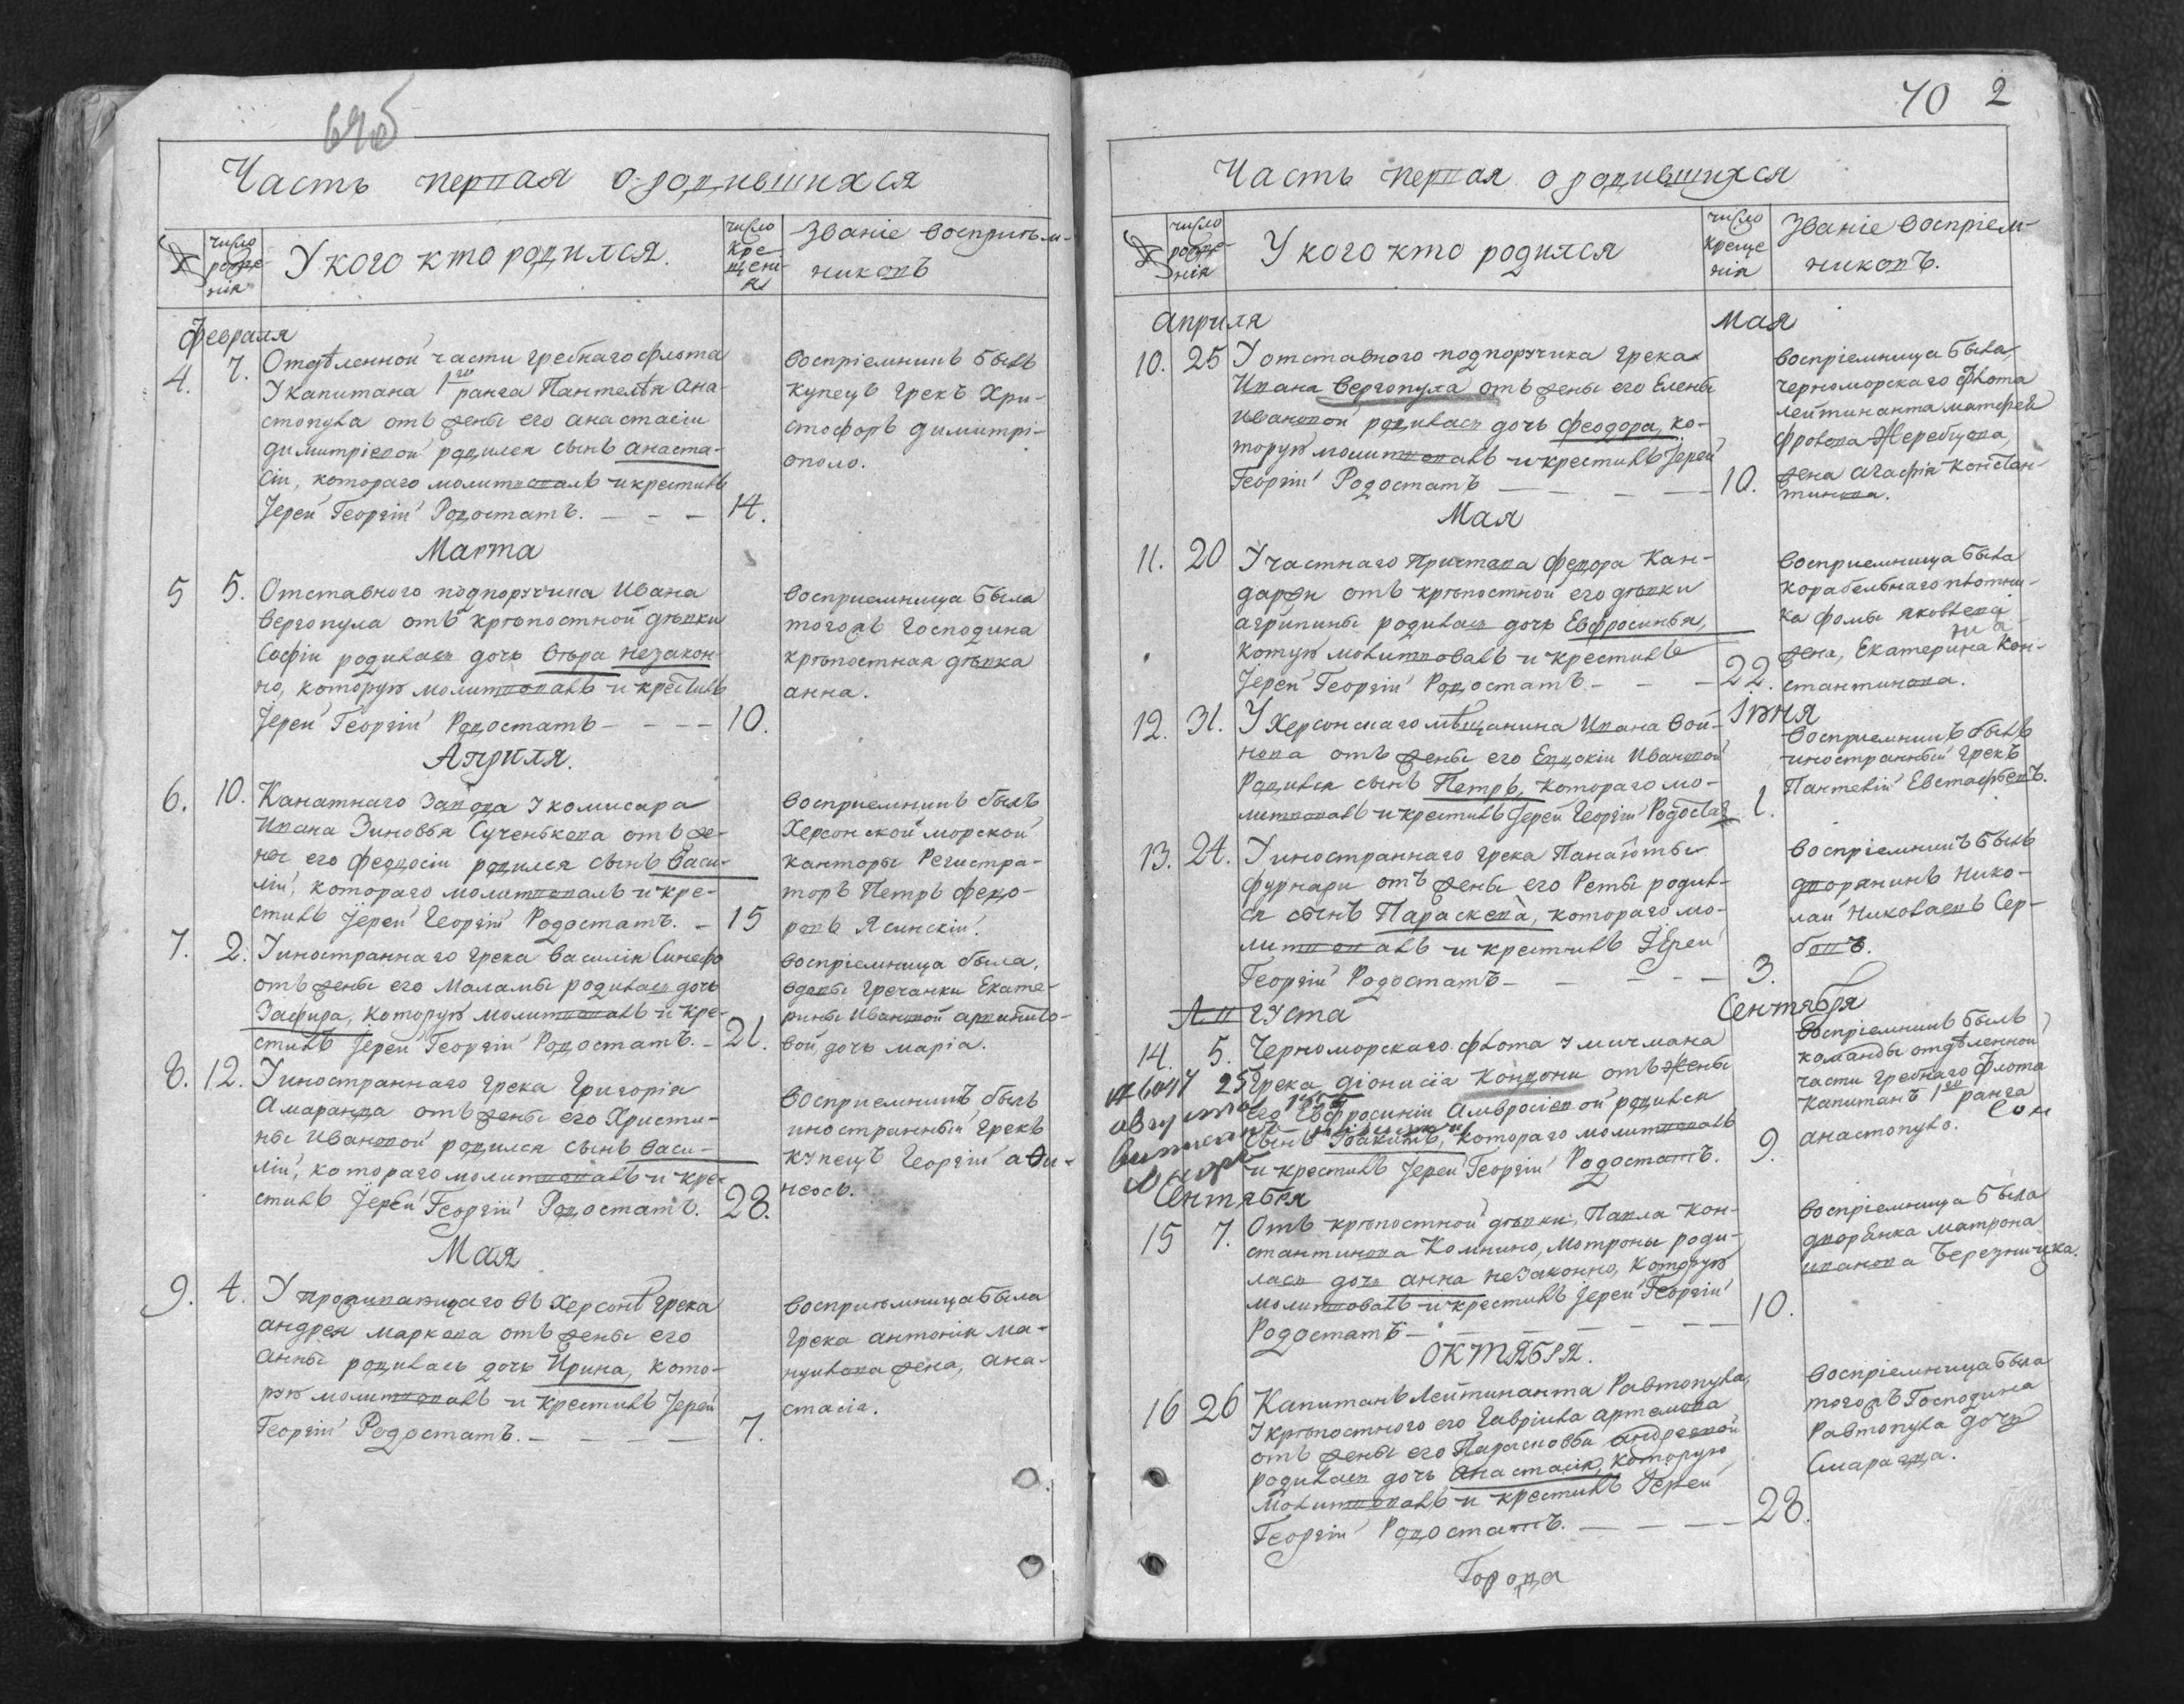 69об
Часть первая о родившихся
№
число рожде-
нія
У кого кто родился.
число
кре-
щені-
я
Званіе воспріем-
никовъ
Февраля
4.
7.
Отдѣленной части гребнаго флота
У капитана 1го ранга Пантелѣя Ана-
стопула отъ жены его анастасіи
димитріевой родился сынъ анаста-
сіи, котораго молитвовалъ и крестилъ
Іерей Георгій Родостатъ. — — —
14.
воспріемникъ былъ
купецъ грекъ Хри-
стофоръ димитрі-
ополо.
Марта
5
5.
Отставного подпоручика Ивана
Вергопула отъ крѣпостной дѣвки
Софіи родилась дочь Вѣра незакон-
но, которую молитвовалъ и крестилъ
Іерей Георгій Родостатъ — — — —
10.
Восприемница была
тогожъ Господина
крѣпостная дѣвка
анна.
Апрѣля.
6.
10.
Канатнаго Завода у комисара
Ивана Зиновья Сученькова отъ же-
ны его Феодосіи родился сынъ Васи-
лій, котораго молитвовалъ и кре-
стилъ Іерей Георгій Родостатъ. —
15
Восприемникъ былъ
Херсонской морской
канторы Регистра-
торъ Петръ Федо-
ровъ Ясинскій.
7.
2.
У иностраннаго грека Василія Синефо
отъ жены его Маламы родилась дочь
Зафира, которую молитвовалъ и кре-
стилъ Іерей Георгій Родостатъ. —
21.
воспріемница была,
вдовы гречанки Екате-
рины Ивановой
вой дочь маріа.
8.
12.
У иностраннаго грека Григорія
Амаранда отъ жены его Христи-
ны Ивановой родился сынъ Васи-
лій, котораго молитвовалъ и кре-
стилъ Іерей Георгій Родостатъ.
28.
Восприемникъ былъ
иностранный грекъ
купецъ Георгій аѳи-
неосъ.
Мая
9.
4.
У проживающаго въ Херсонѣ грека
андрея маркова отъ жены его
анны родилась дочь Ирина, кото-
рую молитвовалъ и крестилъ Іерей
Георгій Родостатъ. — — — —
7.
Воспріемница была
Грека антонія ма-
нуилова жена, ана-
стасіа.
70 2
Часть первая о родившихся
№
число
рожде-
нія
У кого кто родился
число
креще
нія
Званіе воспріем-
никовъ.
Априля
Мая
10.
25
У отставного подпоручика грека
Ивана Вергопула отъ жены его Елены
Ивановой родилась дочь Феодора, ко-
торую молитвовалъ и крестилъ Іерей
Георгій Родостатъ — — — —
10.
воспріемница была,
черноморскаго флота
лейтинанта матфея
фролова Жеребцова,
жена агафія констан-
тинова.
Мая
11.
20
У частнаго Пристава Федора Кан-
даржи отъ крѣпостной его дѣвки
агрипины родилась дочь Евфросинья,
котую молитвовалъ и крестилъ
Іерей Георгій Родостатъ. — — —
22.
Восприемница была
корабельнаго плотни-
ка фомы яковлева
жена, Екатерина Кон-
стантинова.
12.
31.
Іюня
У Херсонскаго мѣщанина Ивана Вой-
нова отъ жены его Евдокіи Ивановой
Родился сынъ Петръ, котораго мо-
литвовалъ и крестилъ Іерей Георгій Родостатъ
1.
Восприемникъ былъ
иностранный грекъ
Пантелій Евстафьевъ.
13.
24.
У иностраннаго грека Панаіоты
Фурнари отъ жены его Реты родил-
ся сынъ Параскева, котораго мо-
литвовалъ и крестилъ Іерей
Георгій Родостатъ — — — —
3.
Воспріемникъ былъ
дворянинъ Нико-
лай Николаевъ Сер-
бовъ.
Августа
Сентября
14.
5.
Черноморскаго флота у мичмана
Грека діонисіа Кондони отъ жены
его Евфросиніи Амвросіевой родился
сынъ Іоакимъ, котораго молитвовалъ
и крестилъ Іерей Георгій Родостатъ.
9.
Воспріемникъ былъ
команды отдѣленной
части Гребнаго флота
Капитанъ 1го ранга
анастопуло.
№ 6047 25
августа
Сентября
15
7.
Отъ крѣпостной дѣвки, Павла Кон-
стантинова Комнино, Мотроны роди-
лась дочь анна незаконно, которую
молитвовалъ и крестилъ Іерей Георгій
Родостатъ — — — — — —
10.
Воспріемница была
дворянка матрона
иванова Березницка.
ОКТЯБРЯ.
16
26
Капитанъ Лейтинанта Равтопула,
У крѣпостного его Гавріила артемова
отъ жены его Парасковьи андреевой
родилась дочь Анастасія, которую
молитвовалъ и крестилъ Іерей
Георгій Родостатъ. — — — —
28.
Воспріемница была
тогожъ Господина
Равтопула дочь
Смарагда.
Города